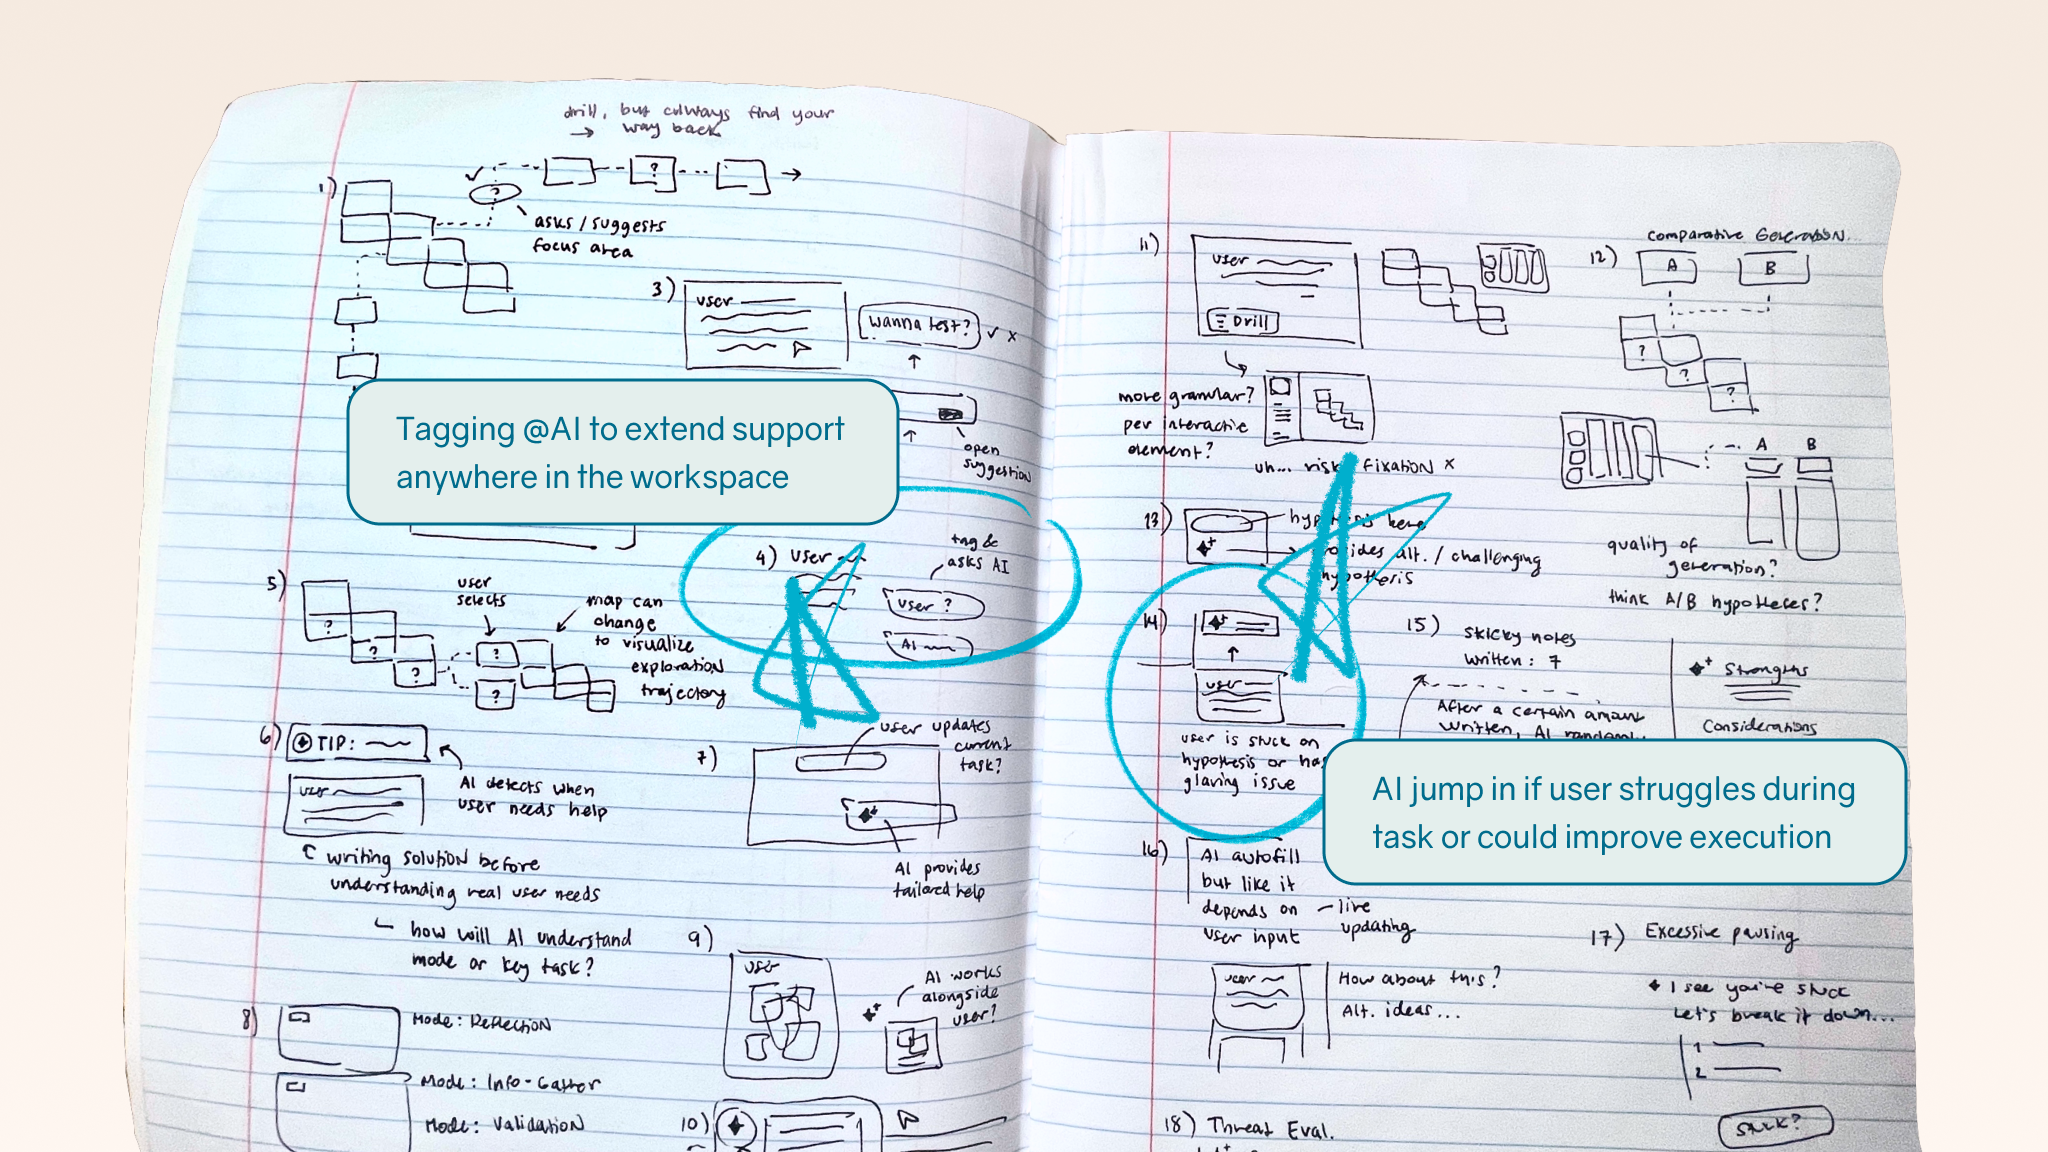 drill, but always find your
→ way back
1)
?
?
asks / suggests
focus area
3)
user
wanna test?
✓ x
open
suggestion
Tagging @AI to extend support
anywhere in the workspace
4) user
tag &
asks AI
user ?
AI
5)
?
?
?
user
selects
?
?
map can
change
to visualize
exploration
trajectory
6)
TIP:
user
AI detects when
user needs help
writing solution before
understanding real user needs
how will AI understand
mode or key task?
7)
user updates
current
task?
AI provides
tailored help
8)
Mode: Reflection
Mode: Info-Gather
Mode: Validation
9)
user
AI works
alongside
user?
10)
11)
user
Drill
more granular?
per interactive
element?
uh... risk fixation x
12)
Comparative Generation...
A
B
?
?
?
A
B
quality of
generation?
think A/B hypotheses?
13)
hypothesis here
provides alt. / challenging
hypothesis
14)
user
user is stuck on
hypothesis or has
glaring issue
15)
Sticky notes
written: 7
After a certain amount
written, AI randomly
Strengths
Considerations
AI jump in if user struggles during
task or could improve execution
16)
AI autofill
but like it
depends on
user input
live
updating
user
How about this?
Alt. ideas...
17) Excessive pausing
I see you're stuck
Let's break it down...
1
2
stuck?
18) Threat Eval.